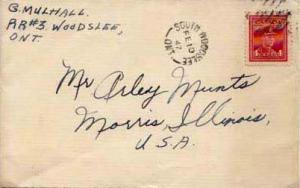 G. MULHALL.
RR#3. WOODSLEE,
ONT.
SOUTH WOODSLEE
FE 10
47
ONT
Mr Arley Munts
Morris, Illinois,
U.S.A.